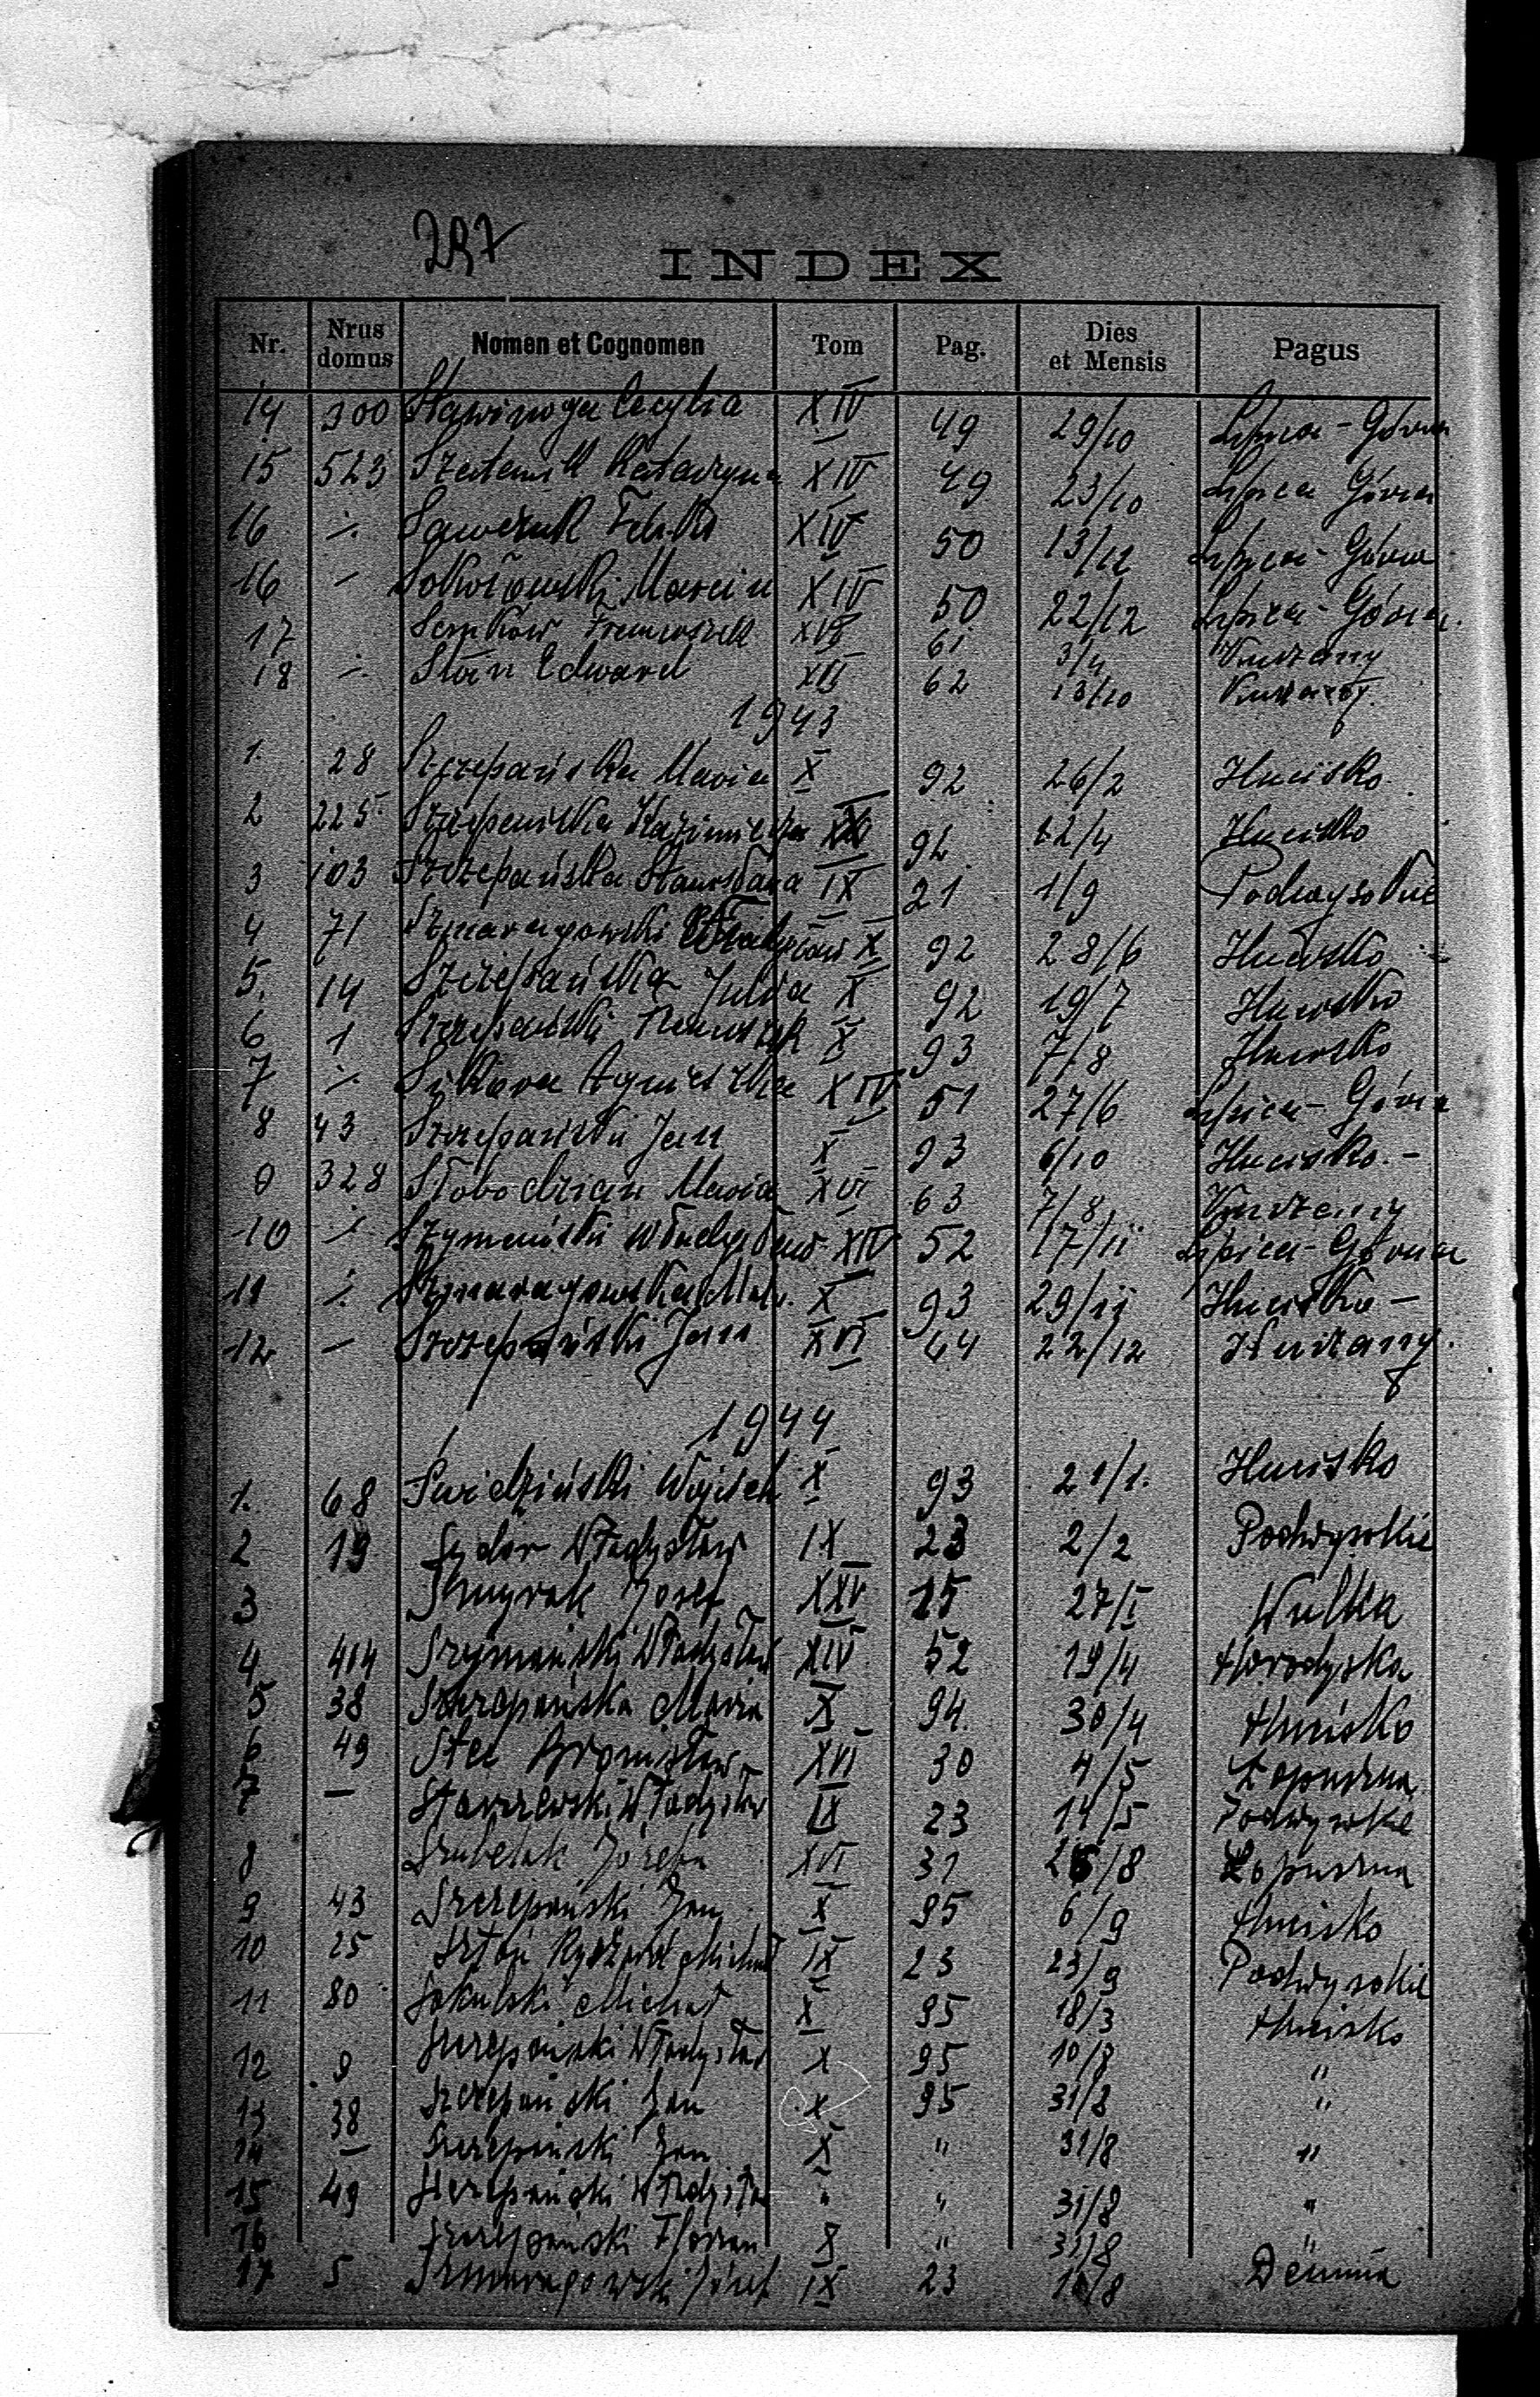 297
INDEX
Nr. Nrus domus Nomen et Cognomen Tom Pag. Dies et Mensis Pagus
14 300 Stawinoga Cecylia XIV 49 29/10 Lipica-Górna
15 523 Katarzyna XIV 49 23/10 Lipica Górna
16 ⁒ Sawczuk XIV 50 13/12 Lipica-Górna
16 – Sokołowski Marcin XIV 50 22/12 Lipica-Górna.
17 Senków Franciszek XVI 61 3/4
18 ⁒ Stań Edward XVI 62 13/10
1943
1. 28 Szczepańska Maria X 92 26/2 Hucisko.
2 225 Szczepańska Kazimiera 92 Hucisko
3 103 Szczepańska Stanisława IX 21 1/9 Podwysokie
4 71 Szmaragowski Władysław X 92 28/6 Hucisko
5. 14 Szczepańska Julia X 92 19/7 Hucisko
6 1 Szczepański Franciszek X 93 7/8 Hucisko
7 ⁒ Sikora Agnieszka XIV 51 27/6 Lipica-Górna
8 43 Szczepański Jan X 93 6/10 Hucisko.-
9 328 Słobodzian Maria XVI 63 7/8
10 ⁒ Szymański Władysław XIV 52 17/11 Lipica-Górna
11 ⁒ Szmaragowska X 93 29/11 Hucisko –
12 – Szczepański Jan XVI 44 22/12
1944
1. 68 Świdziński Wojciech X 93 21/1. Hucisko
2 19 Sydor Władysław IX 23 2/2 Podwysokie
3 Józef XXV 15 27/I Wulka
4 414 Szymański Władysław XIV 52 19/4 Horodyska
5 38 Szczepańska Maria X 94 30/4 Hucisko
6 49 Stec Bronisław XVI 30 4/5 Łopuszna
7 – Starzewski Władysław IX 23 14/5 Podwysokie
8 Szubelak Józefa XVI 31 /8 Łopuszna
9 43 Szczepański Jan X 95 6/9 Hucisko
10 25 Ryszard Michał IX 23 23/9 Podwysokie
11 80 Sokulski Michał X 95 18/3 Hucisko
12 9 Szczepański Władysław X 95 10/8 "
13 38 Szczepański Jan X 95 31/8 "
14 – Szczepański Jan X " 31/8 "
15 49 Szczepański Władysław " " 31/8 "
16 Szczepański Florian X " 31/8 "
17 5 Szmaragowski Józef IX 23 /8 Demnia